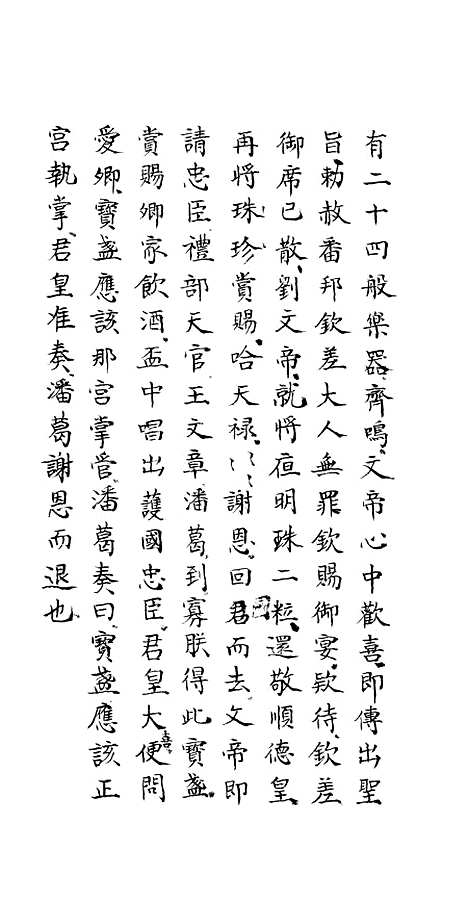 有二十四般樂器、齊鳴、文帝心中歡喜、即傳出聖
旨、勅赦番邦欽差大人無罪欽賜御宴、欵待、欽差
御席已散、劉文帝、就將夜明珠二粒、還敬順德皇、
再將珠珍賞賜、哈天禄、〻〻謝恩、回國君而去、文帝即
請忠臣禮部天官王文章潘葛、到、寡朕得此寳盞、
賞賜卿家飲酒、盃中唱出護國忠臣、君皇大喜、便問
愛卿、寳盞應該那宮掌管、潘葛奏曰、寳盞應該正
宮執掌、君皇准奏、潘葛謝恩而退也、